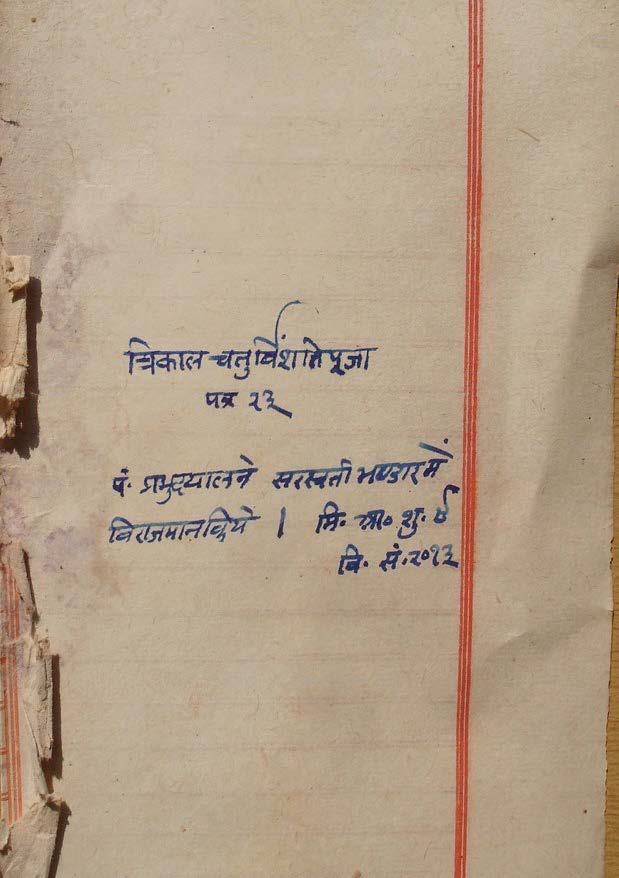 त्रिकाल चतुर्विंशतिपूजा
पत्र २३
पं. प्रभुदयालने सरस्वती भण्डारमें
विराजमान किये । मि. श्रा० शु.
वि. सं. २०१३